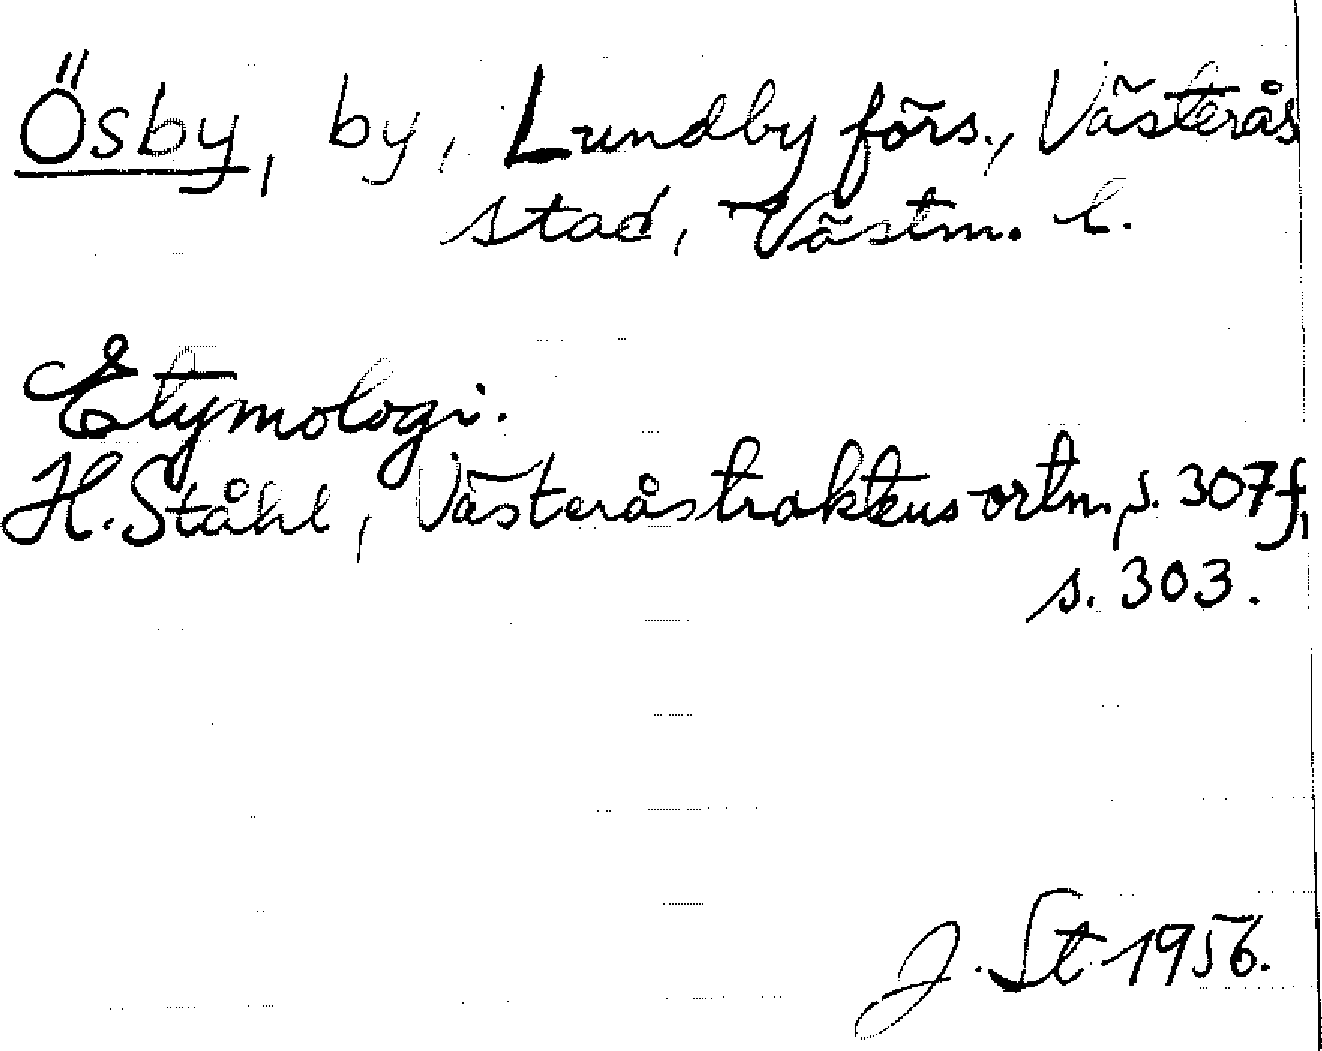 Ösby, by, Lundby förs., Västerås
stad, Västm. l.
Etymologi.
H. Ståhl, Västeråstraktens ortn., s. 307 f,
s. 303.
J. St 1956.